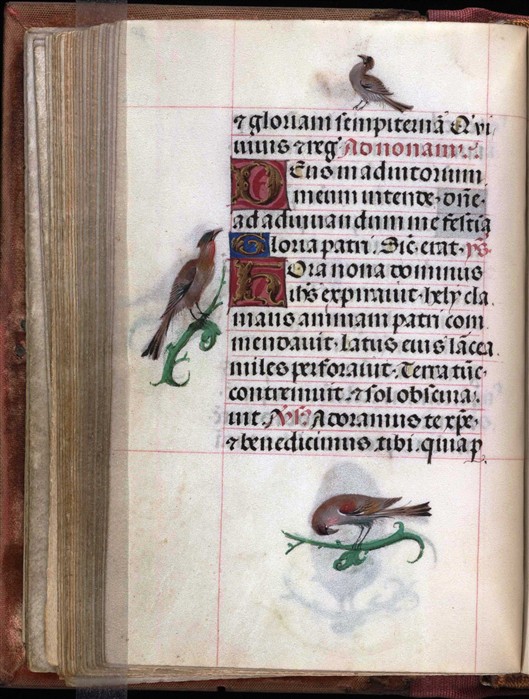 ⁊ gloriam sempiternā Qͥ vi
uius ⁊ reḡ Ad nonam v̄s
Deus in adiutorium
meum intende · dn̄e
ad adiuuandum me festia
Gloria patri . Sic erat · ym̄s
Hora nona dominus
ihs̄ expirauit · hely cla
mans animam patri com
mendauit · Latus eius lācea
miles perforauit · Terra tūc
contremuit · ⁊ sol obscura
uit . V̄s Adoramus te xp̄e ·
⁊ benedicimus tibi . quia p̲